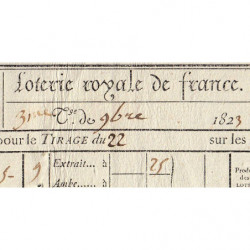 Loterie royale de france.
3me T.ge de 9bre 1823
pour le TIRAGE du 22 sur les
5- 9 Extrait.... à 25
Ambe.... à
Prod
des